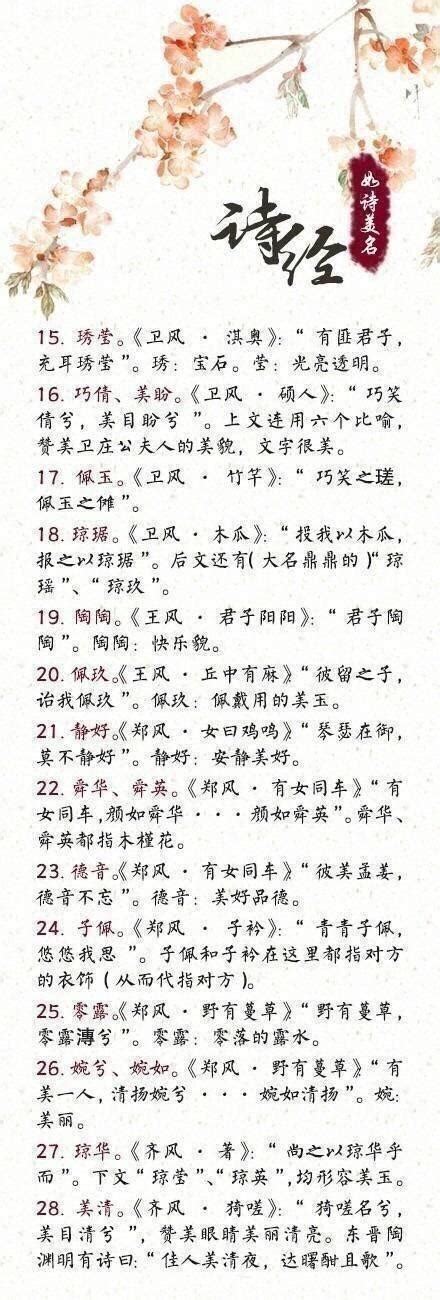 如诗美名
诗经
15. 琇莹。《卫风 · 淇奥》：“ 有匪君子，
充耳琇莹 ”。琇：宝石。莹：光亮透明。
16. 巧倩、美盼。《卫风 · 硕人》：“ 巧笑
倩兮，美目盼兮 ”。上文连用六个比喻，
赞美卫庄公夫人的美貌，文字很美。
17. 佩玉。《卫风 · 竹竿》：“ 巧笑之瑳，
佩玉之傩 ”。
18. 琼琚。《卫风 · 木瓜》：“ 投我以木瓜，
报之以琼琚 ”。后文还有( 大名鼎鼎的 )“ 琼
瑶 ”、“ 琼玖 ”。
19. 陶陶。《王风 · 君子阳阳》：“ 君子陶
陶 ”。陶陶：快乐貌。
20. 佩玖。《王风 · 丘中有麻》“ 彼留之子，
诒我佩玖 ”。佩玖：佩戴用的美玉。
21. 静好。《郑风 · 女曰鸡鸣》“ 琴瑟在御，
莫不静好 ”。静好：安静美好。
22. 舜华、舜英。《郑风 · 有女同车》“ 有
女同车，颜如舜华 · · · 颜如舜英 ”。舜华、
舜英都指木槿花。
23. 德音。《郑风 · 有女同车》“ 彼美孟姜，
德音不忘 ”。德音：美好品德。
24. 子佩。《郑风 · 子衿》：“ 青青子佩，
悠悠我思 ”。子佩和子衿在这里都指对方
的衣饰 ( 从而代指对方 )。
25. 零露。《郑风 · 野有蔓草》“ 野有蔓草，
零露漙兮 ”。零露：零落的露水。
26. 婉兮、婉如。《郑风 · 野有蔓草》“ 有
美一人，清扬婉兮 · · · 婉如清扬 ”。婉：
美丽。
27. 琼华。《齐风 · 著》：“ 尚之以琼华乎
而 ”。下文 “ 琼莹 ”、“ 琼英 ”，均形容美玉。
28. 美清。《齐风 · 猗嗟》：“ 猗嗟名兮，
美目清兮 ”，赞美眼睛美丽清亮。东晋陶
渊明有诗曰：“ 佳人美清夜，达曙酣且歌 ”。